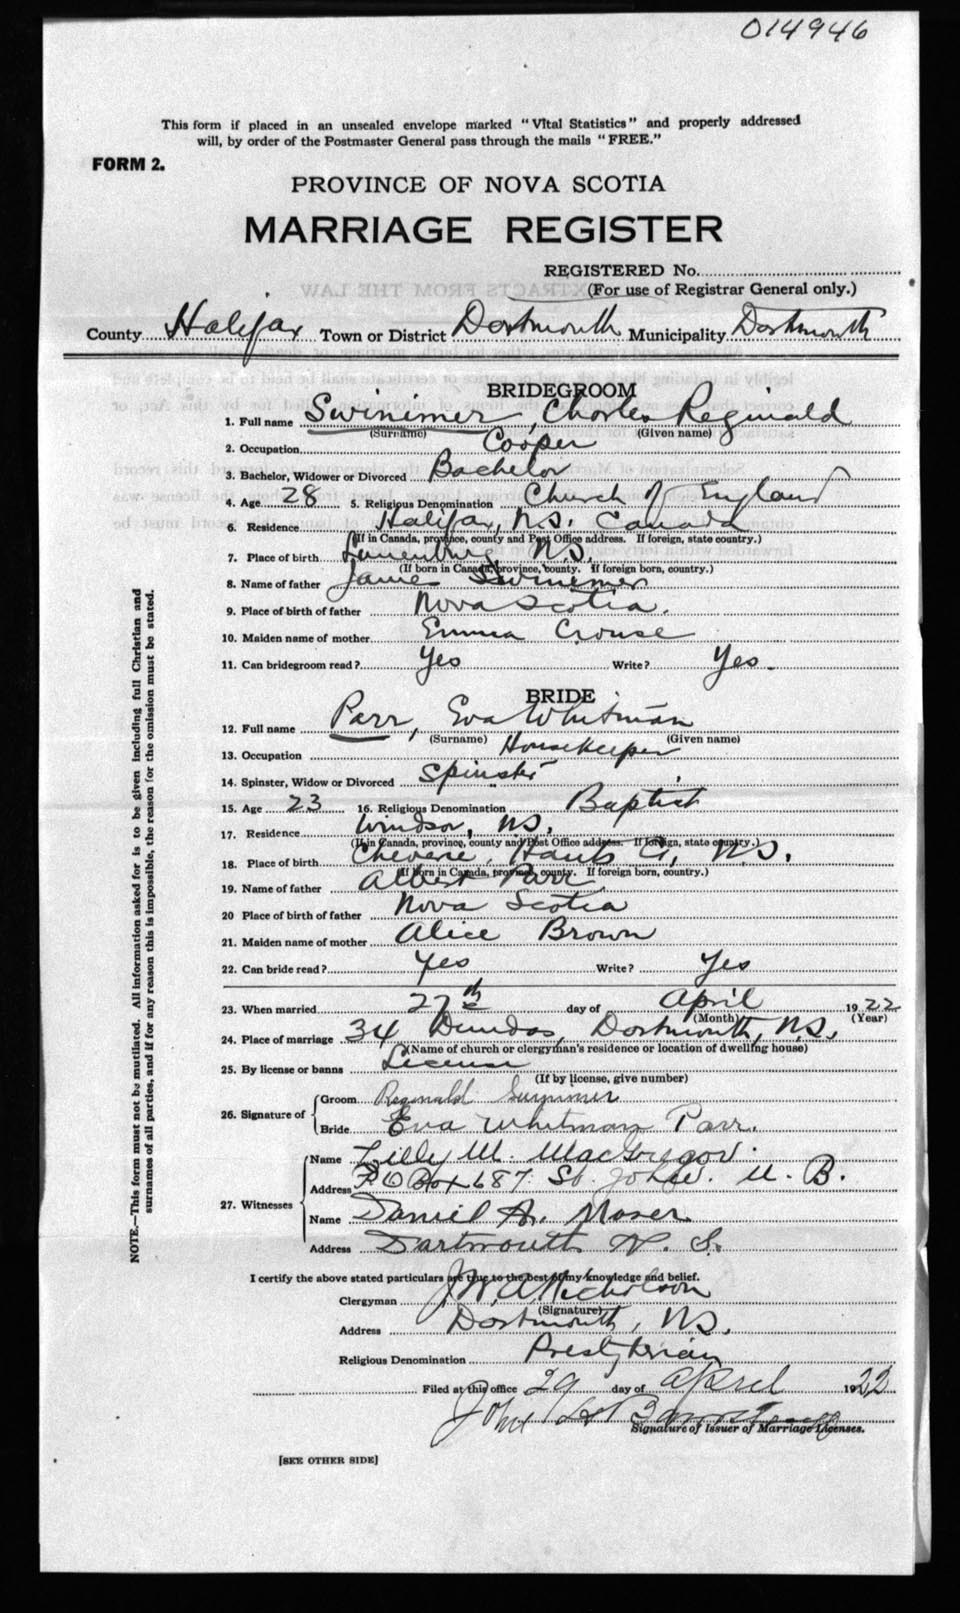 014946
This form if placed in an unsealed envelope marked "Vital Statistics" and properly addressed
will, by order of the Postmaster General pass through the mails "FREE."
FORM 2.
PROVINCE OF NOVA SCOTIA
MARRIAGE REGISTER
REGISTERED No.
(For use of Registrar General only.)
County Halifax Town or District Dartmouth Municipality Dartmouth
BRIDEGROOM
1. Full name Swinimer, Charles Reginald
(Surname) (Given name)
2. Occupation Cooper
3. Bachelor, Widower or Divorced Bachelor
4. Age 28 5. Religious Denomination Church of England
6. Residence Halifax, N.S. Canada
(If in Canada, province, county and Post Office address. If foreign, state country.)
7. Place of birth Lunenburg N.S.
(If born in Canada, province, county. If foreign born, country.)
8. Name of father James Swinimer
9. Place of birth of father Nova Scotia.
10. Maiden name of mother Emma Crouse
11. Can bridegroom read? Yes Write? Yes.
BRIDE
12. Full name Parr, Eva Whitman
(Surname) (Given name)
13. Occupation Housekeeper
14. Spinster, Widow or Divorced Spinster
15. Age 23 16. Religious Denomination Baptist
17. Residence Windsor, N.S.
(If in Canada, province, county and Post Office address. If foreign, state country.)
18. Place of birth Cheverie, Hants Co, N.S.
(If born in Canada, province, county. If foreign born, country.)
19. Name of father Albert Parr
20 Place of birth of father Nova Scotia
21. Maiden name of mother Alice Brown
22. Can bride read? Yes Write? Yes
23. When married 27th day of April 1922
(Month) (Year)
24. Place of marriage 34 Dundas, Dartmouth, N.S.
(Name of church or clergyman's residence or location of dwelling house)
25. By license or banns License
(If by license, give number)
26. Signature of Groom Reginald Swinimer
Bride Eva Whitman Parr.
27. Witnesses Name Lilly M. MacGregor.
Address P.O Box 687. St. John. N. B.
Name Daniel A. Moser
Address Dartmouth N. S.
I certify the above stated particulars are true to the best of my knowledge and belief.
Clergyman J.W.A. Nicholson
(Signature)
Address Dartmouth, N.S.
Religious Denomination Presbyterian
Filed at this office 29 day of April 1922
John
Signature of Issuer of Marriage Licenses.
[SEE OTHER SIDE]
NOTE.—This form must not be mutilated. All information asked for is to be given including full Christian and
surnames of all parties, and if for any reason this is impossible, the reason for the omission must be stated.